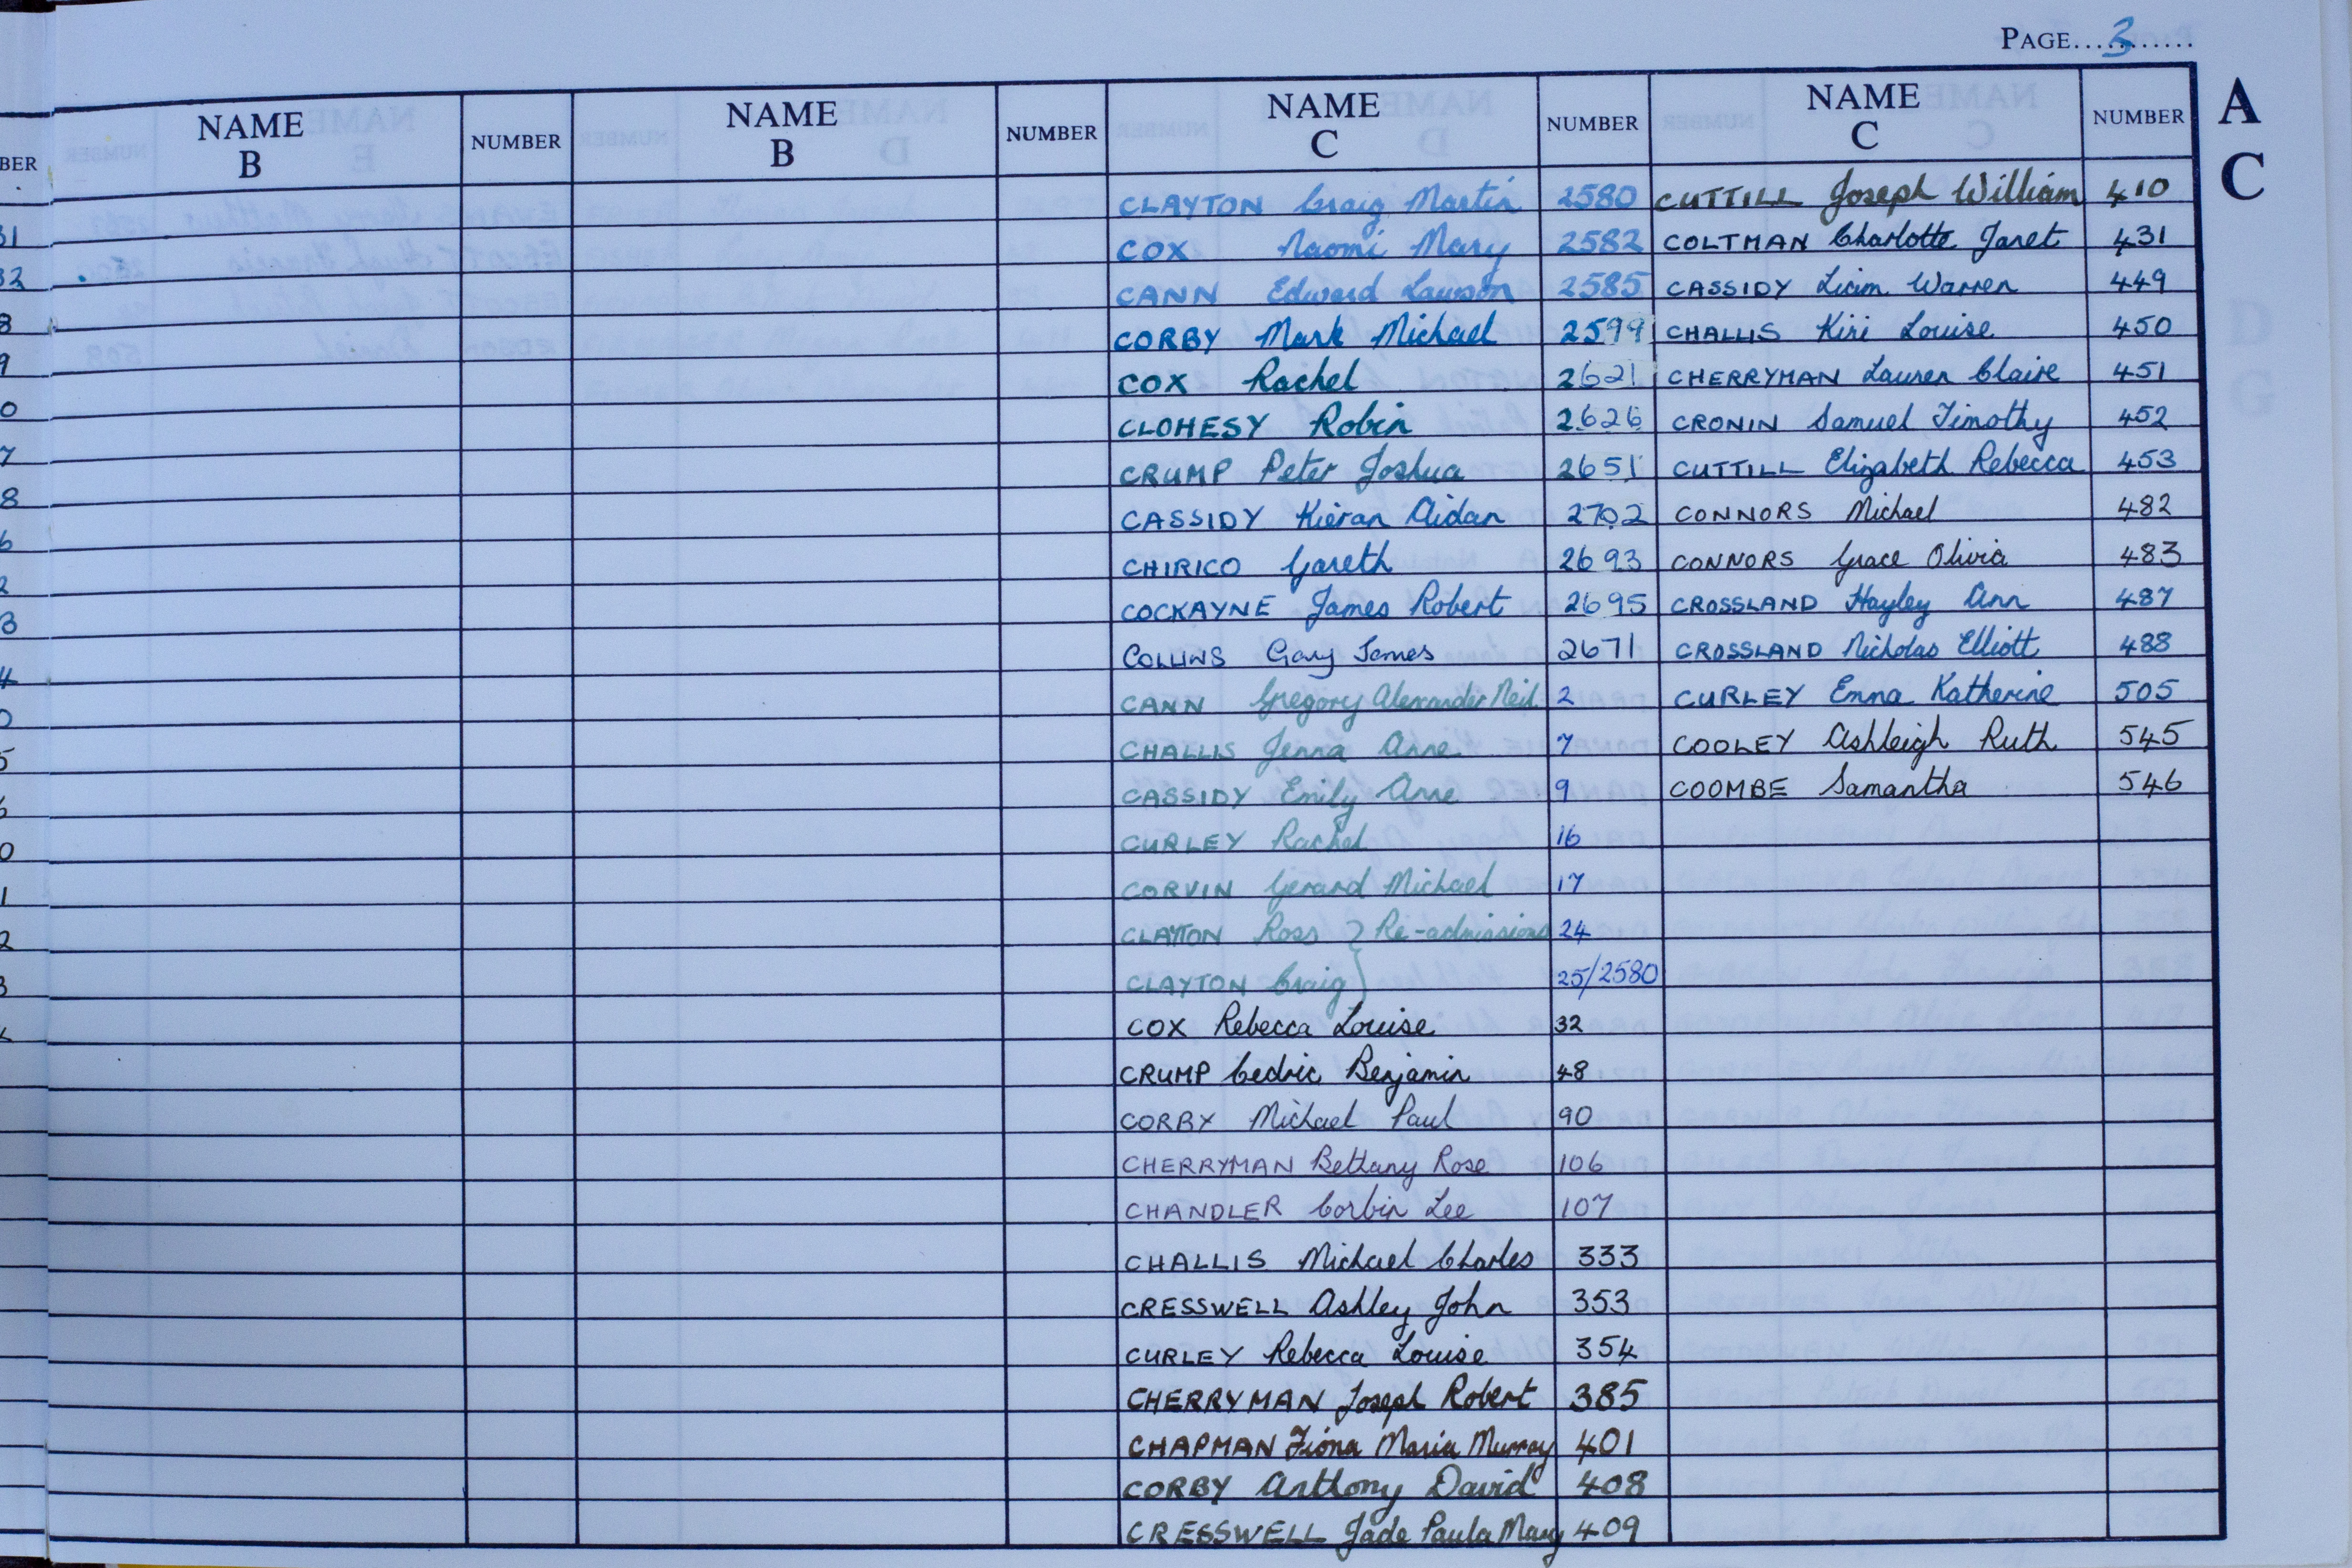 PAGE 3
NAME B NUMBER NAME B NUMBER NAME C NUMBER NAME C NUMBER
A
C
CLAYTON Craig Martin 2580
COX Naomi Mary 2582
CANN Edward Lawson 2585
CORBY Mark Michael 2599
COX Rachel 2621
CLOHESY Robin 2626
CRUMP Peter Joshua 2651
CASSIDY Kieran Aidan 2702
CHIRICO Gareth 2693
COCKAYNE James Robert 2695
COLLINS Gary James 2671
CANN Gregory Alexander Neil 2
CHALLIS Jenna Anne 7
CASSIDY Emily Anne 9
CURLEY Rachel 16
CORVIN Gerard Michael 17
CLAYTON Ross } Re-admissions 24
CLAYTON Craig } 25/2580
COX Rebecca Louise 32
CRUMP Cedric Benjamin 48
CORBY Michael Paul 90
CHERRYMAN Bethany Rose 106
CHANDLER Corbin Lee 107
CHALLIS Michael Charles 333
CRESSWELL Ashley John 353
CURLEY Rebecca Louise 354
CHERRYMAN Joseph Robert 385
CHAPMAN Fiona Maria Murray 401
CORBY Anthony David 408
CRESSWELL Jade Paula Mary 409
CUTTILL Joseph William 410
COLTMAN Charlotte Janet 431
CASSIDY Liam Warren 449
CHALLIS Kiri Louise 450
CHERRYMAN Lauren Claire 451
CRONIN Samuel Timothy 452
CUTTILL Elizabeth Rebecca 453
CONNORS Michael 482
CONNORS Grace Olivia 483
CROSSLAND Hayley Ann 487
CROSSLAND Nicholas Elliott 488
CURLEY Emma Katherine 505
COOLEY Ashleigh Ruth 545
COOMBE Samantha 546